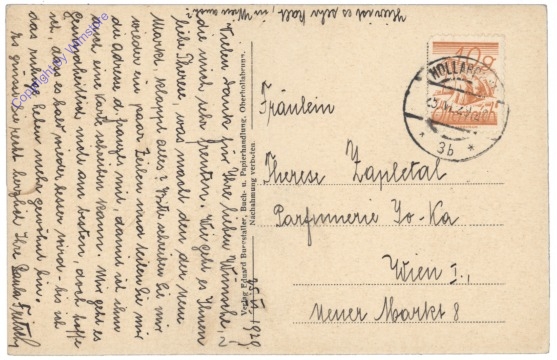 Hier ist es sehr kalt, in Wien auch
Vielen Dank für Ihre lieben Wünsche,
die mich sehr freuten. Wie geht es Ihnen
liebe Therese, was macht den der neue
Markt, klappt alles? Bitte schreiben Sie mir
wieder ein paar Zeilen und teilen Sie mir
die Adresse d. mit, damit ich ihm
auch eine Karte schreiben kann. Mir geht es
gesundheitlich nicht am besten, doch hoffe
ich, dass es bald wieder besser wird. bis ich
das ruhige Leben mehr gewöhnt bin.
Es grüsst Sie recht herzlich Ihre Paula
25. VI. 1929.
Verlag Eduard Burgstaller, Buch- u. Papierhandlung, Oberhollabrunn.
Nachahmung verboten.
Fräulein
Therese Zapletal
Parfumerie Yo-Ka
Wien I.,
Neuer Markt 8
10 g
HOLLABRUNN
* 3b *
Copyright by